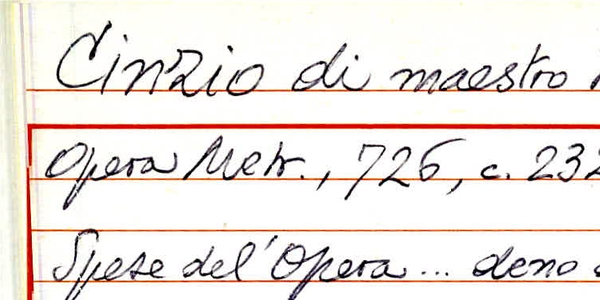 Cinzio di maestro
Opera Metr., 726, c. 232
Spese del'Opera... deno